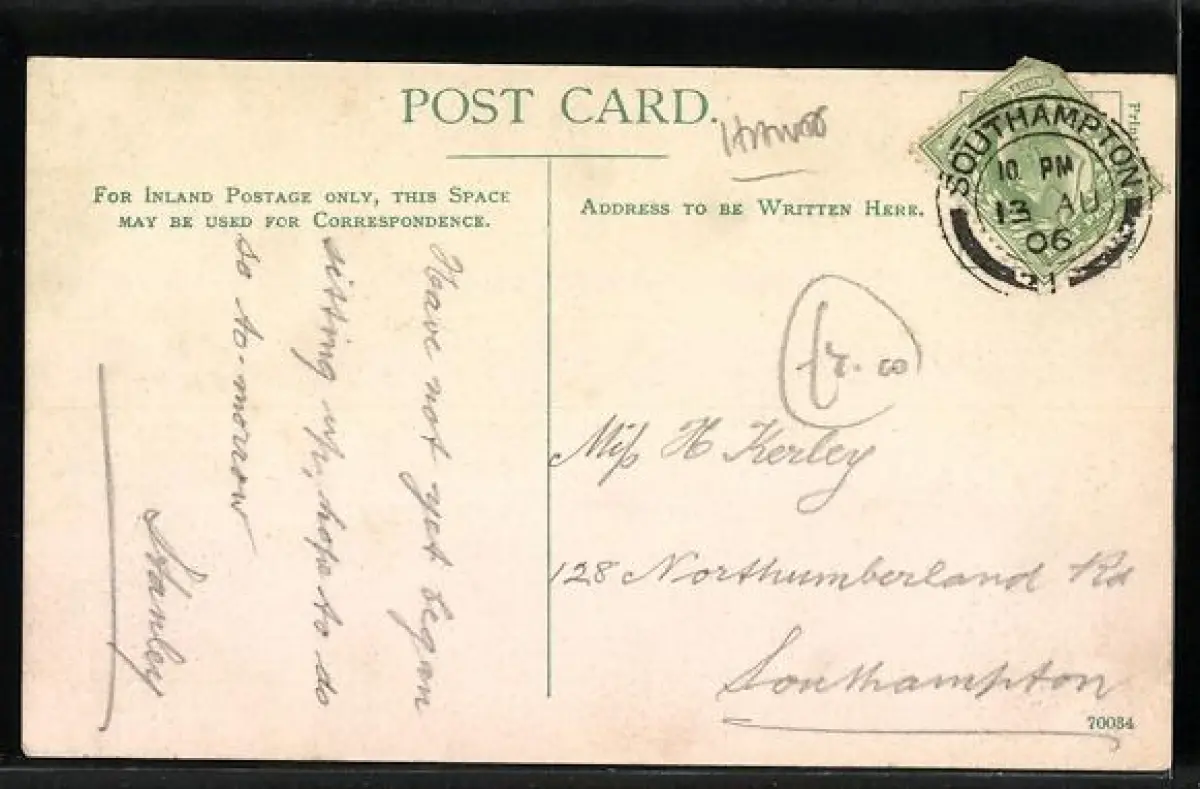 POST CARD.
FOR INLAND POSTAGE ONLY, THIS SPACE
MAY BE USED FOR CORRESPONDENCE.
ADDRESS TO BE WRITTEN HERE.
SOUTHAMPTON
10 PM
13 AU
06
21
Have not yet began
sitting up, hope to do
so to-morrow
Stanley
Miss H Kerley
128 Northumberland Rd
Southampton
70034